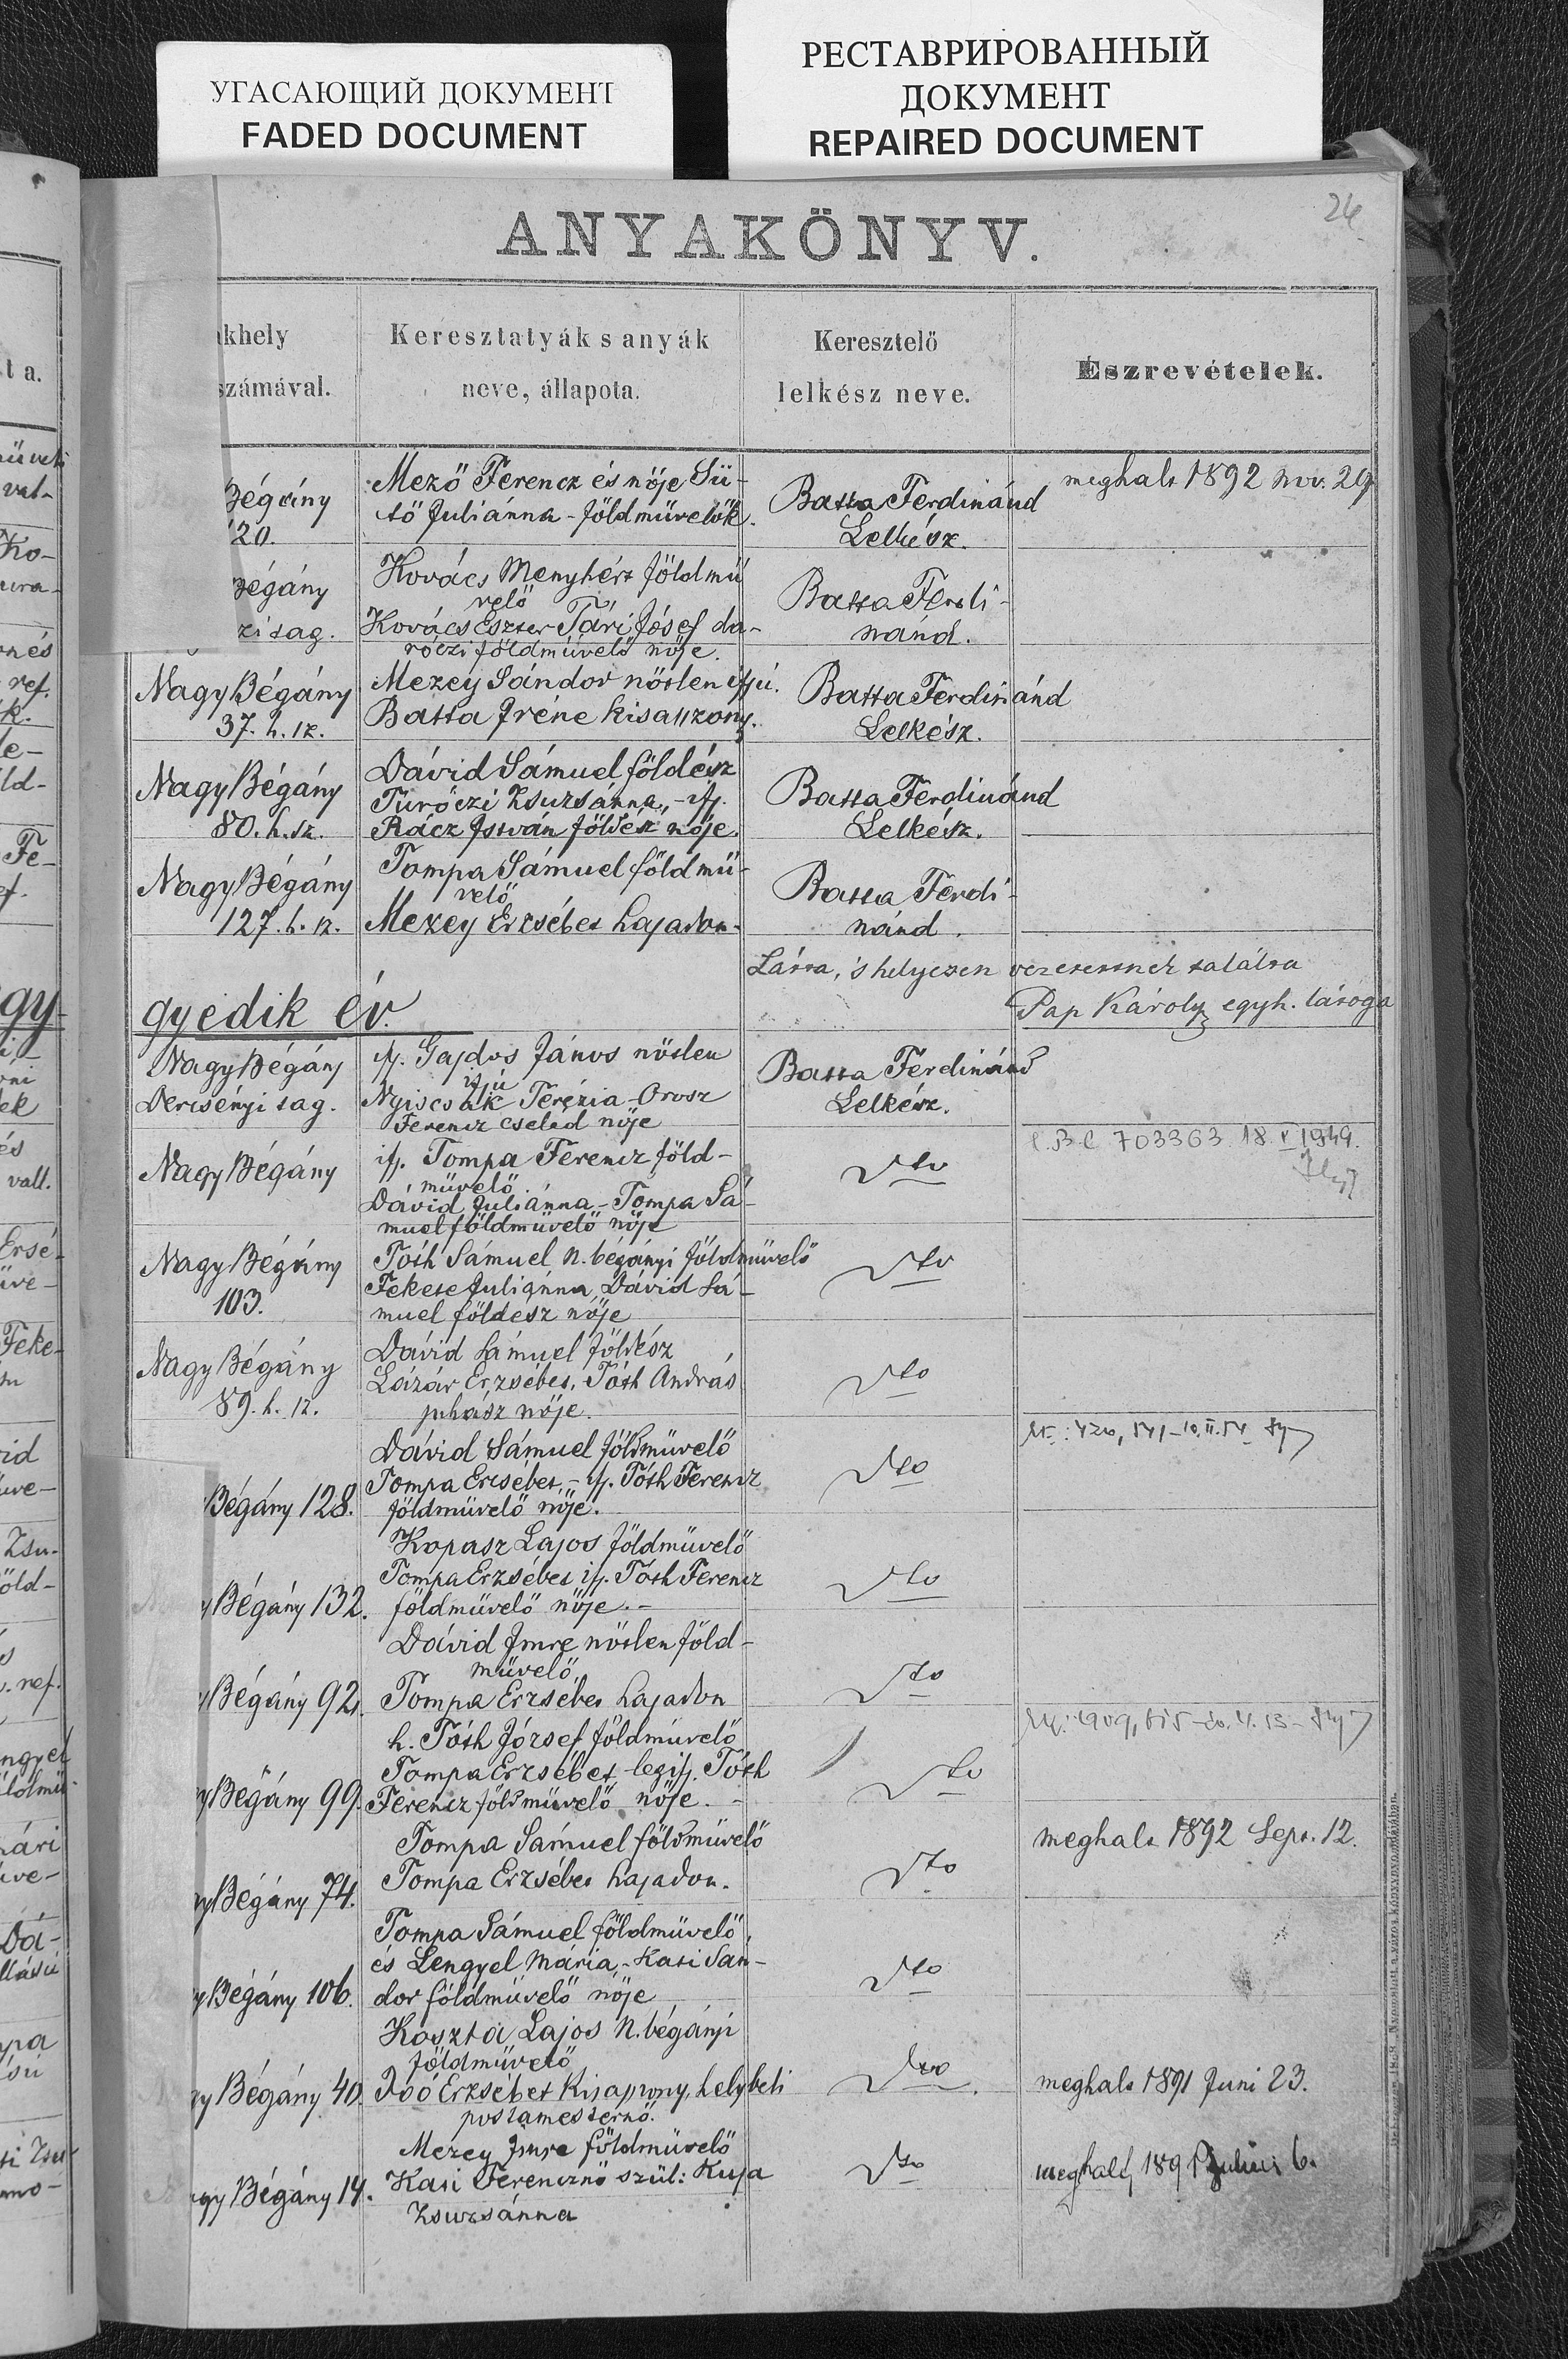 УГАСАЮЩИЙ ДОКУМЕНТ
FADED DOCUMENT
РЕСТАВРИРОВАННЫЙ
ДОКУМЕНТ
REPAIRED DOCUMENT
ANYAKÖNYV.
khely
számával.
Keresztatyák s anyák
neve, állapota.
Keresztelő
lelkész neve.
Észrevételek.
Bégány
20.
Mező Ferencz és nője Sü-
tő Juliánna - földművelők.
Batta Ferdinánd
Lelkész.
meghalt 1892 nov. 29
égány
tag.
Kovács Menyhért földmű
velő
Kovács Eszter Tári Jósef da-
róczi földművelő nője.
Batta Ferdi-
nánd.
Nagy Bégány
37. h. sz.
Mezey Sándor nőtlen ifjú.
Batta Iréne kisasszony.
Batta Ferdinánd
Lelkész.
Nagy Bégány
80. h. sz.
Dávid Sámuel földész
Turóczi Zsuzsánna, - ifj.
Rácz István földész nője.
Batta Ferdinánd
Lelkész.
Nagy Bégány
127. h. sz.
Tompa Sámuel földmű-
velő
Mezey Erzsébet hajadon.
Batta Ferdi-
nánd.
Látta, s helyesen vezetettnek találta
Pap Károly egyh. látoga
gyedik év.
Nagy Bégány
Dercsényi tag.
ifj. Gajdos János nőtlen
ifjú
Nyiscsák Terézia - Orosz
Ferencz cseléd nője
Batta Ferdinánd
Lelkész.
Nagy Bégány
ifj. Tompa Ferencz föld-
művelő
Dávid Juliánna - Tompa Sá-
muel földművelő nője
dto
703363 18 V 1949.
Nagy Bégány
103.
Tóth Sámuel N. bégányi földművelő
Fekete Juliánna, Dávid Sá-
muel földész nője
dto
Nagy Bégány
89. h. sz.
Dávid Sámuel földész
Lázár Erzsébet, Tóth András
juhász nője.
dto
Bégány 128.
Dávid Sámuel földművelő
Tompa Ersébet, - ifj. Tóth Ferencz
földművelő nője.
dto
y Bégány 132.
Kopasz Lajos földművelő
Tompa Erzsébet ifj. Tóth Ferencz
földművelő nője. -
dto
y Bégány 92.
Dávid Imre nőtlen föld-
művelő
Tompa Erzsébet hajadon
dto
y Bégány 99.
h. Tóth József földművelő
Tompa Erzsébet legifj. Tóth
Ferencz földművelő nője. -
dto
y Bégány 74.
Tompa Sámuel földművelő
Tompa Erzsébet hajadon.
dto
meghalt 1892 Sept. 12.
y Bégány 106.
Tompa Sámuel földművelő
és Lengyel Mária, - Kati Sán-
dor földművelő nője
dto
gy Bégány 40.
Koszta Lajos N. bégányi
földművelő
Joó Erzsébet Kisasszony, helybeli
postamesternő.
dto
meghalt 1891 Juni 23.
agy Bégány 14.
Mezey Imre földművelő
Kati Ferencznő szül: Kuja
Zsuzsánna
dto
meghalt 1891 Julius 6.